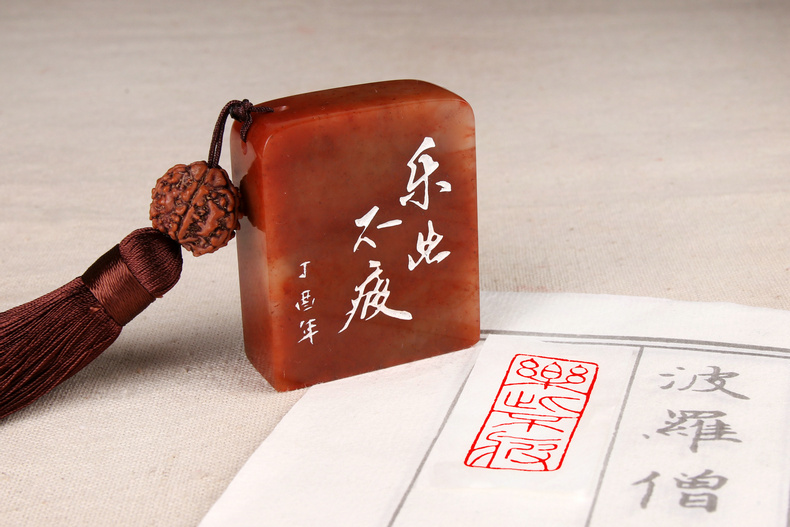 乐此
不疲
丁酉年
樂此不疲
波羅僧